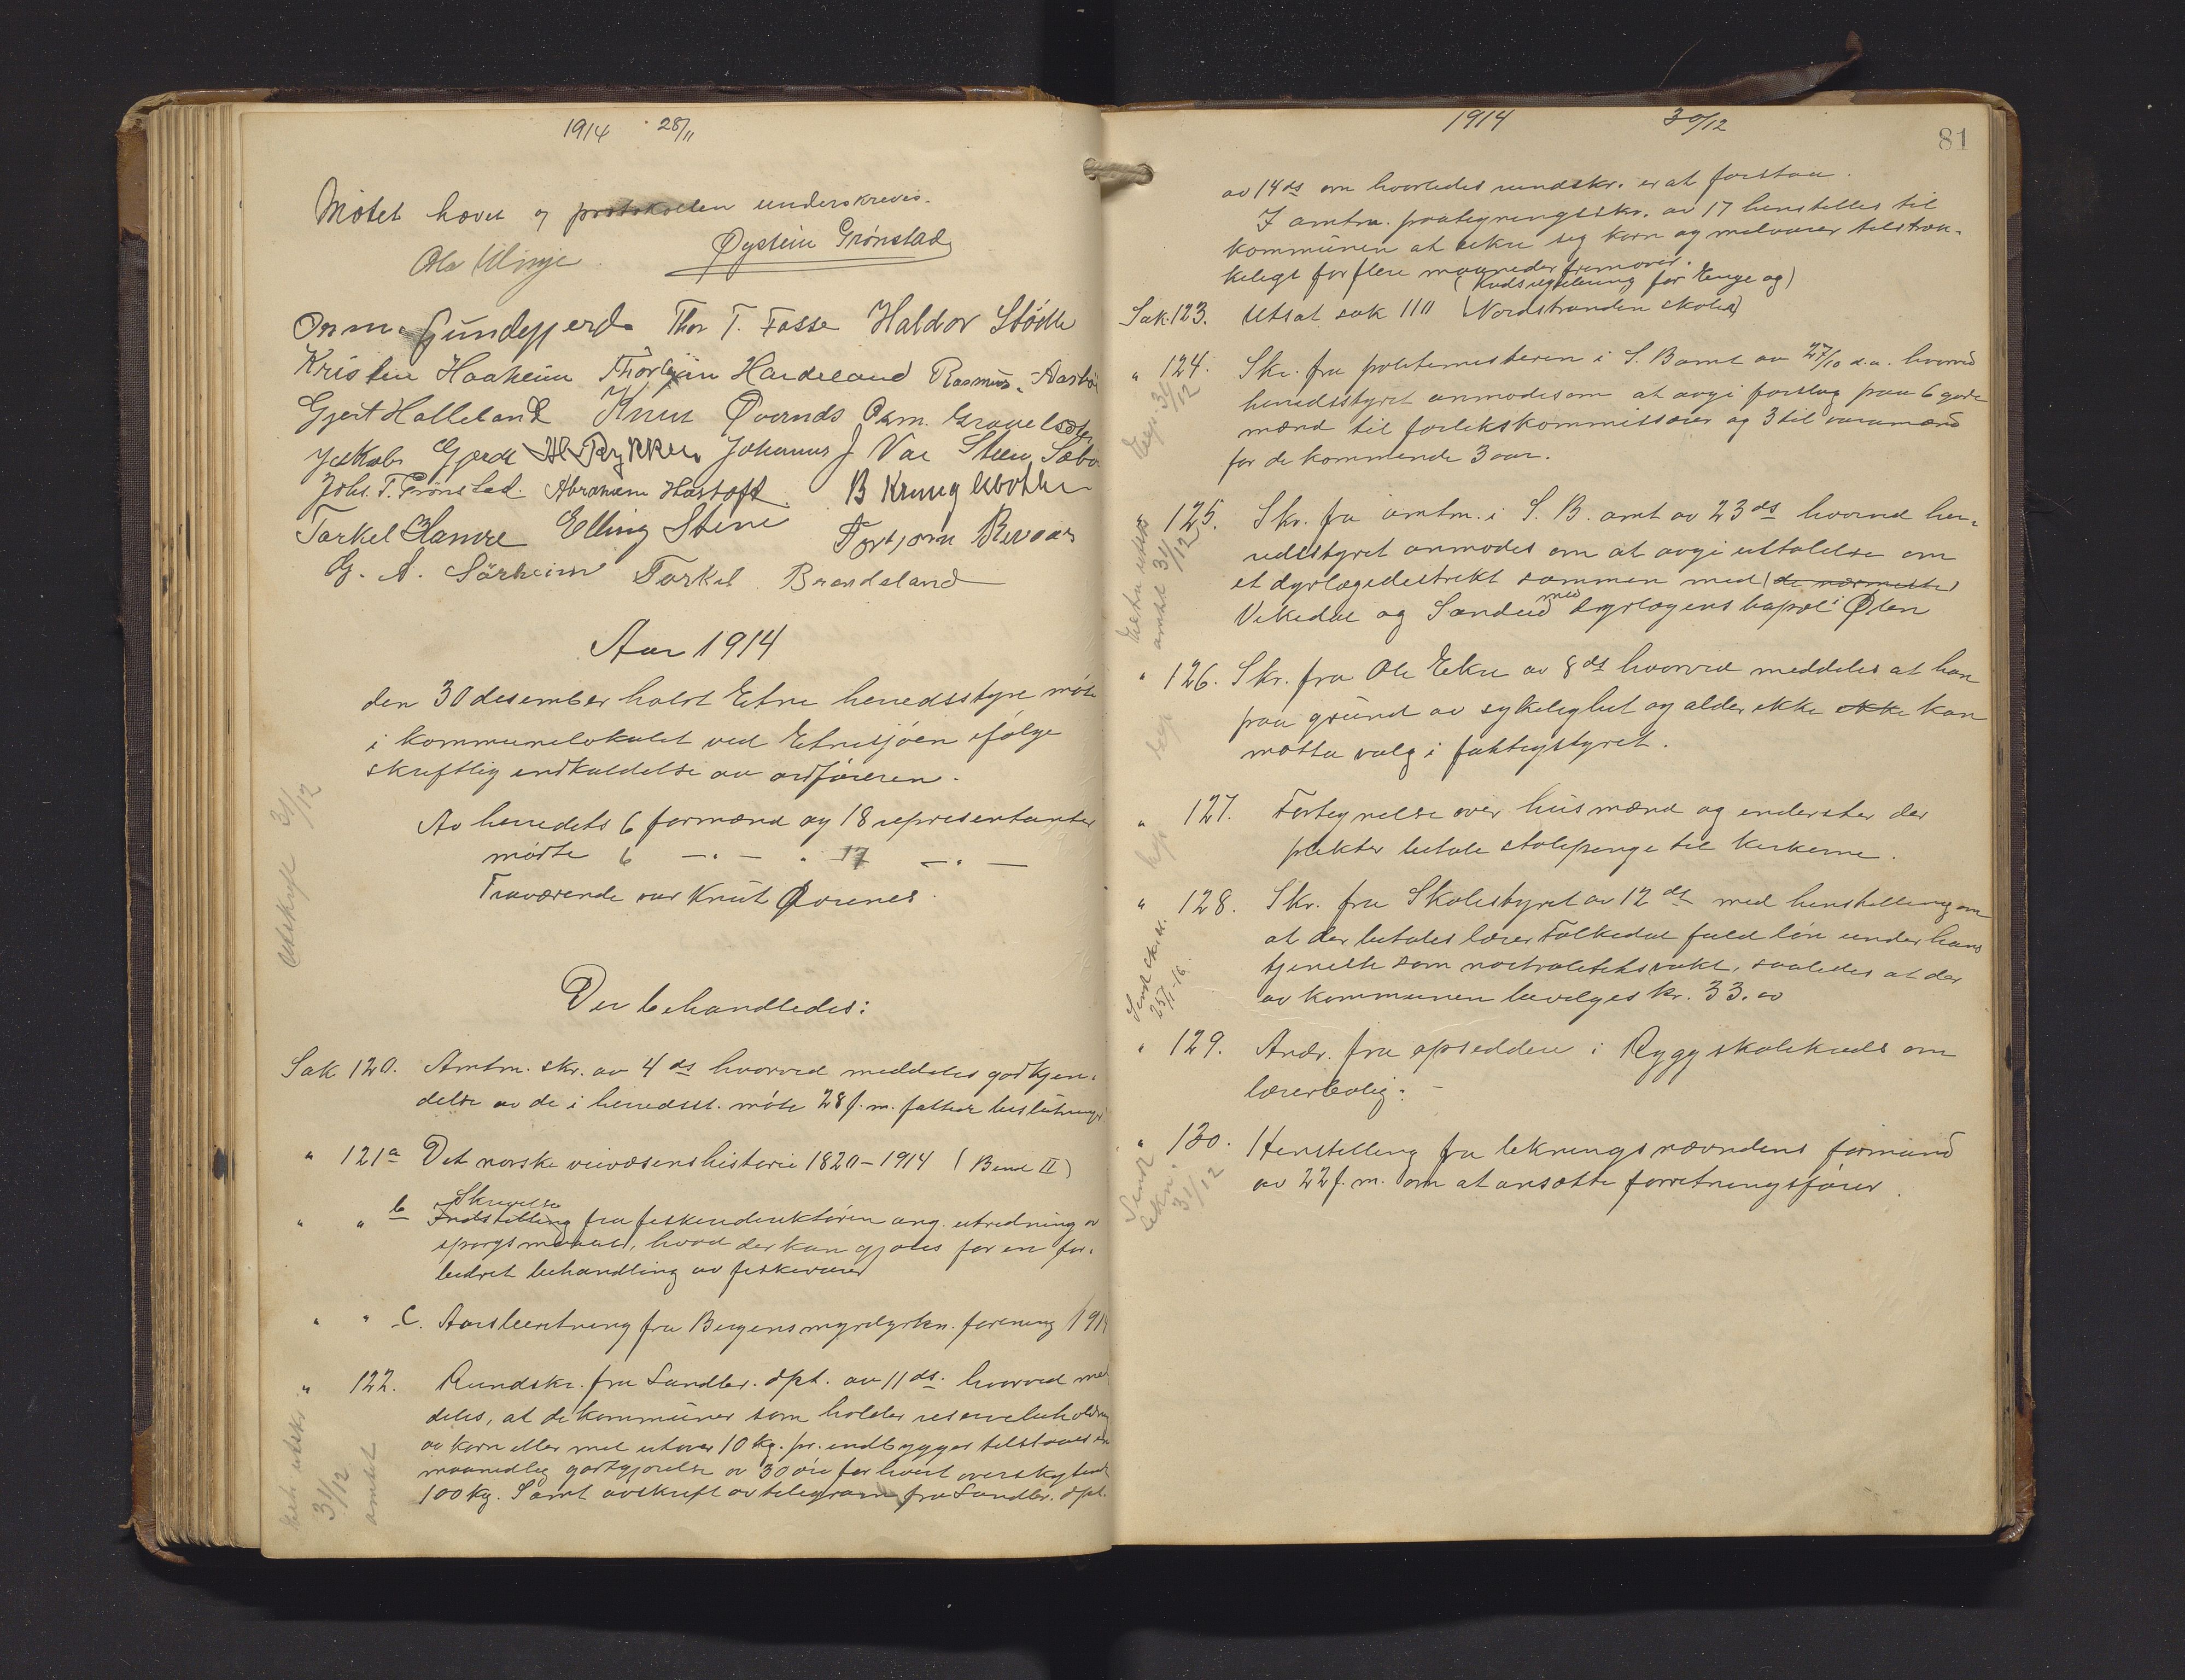 1914 28/11
Møtet hævet og protokollen underskreves.
Ola Vlinje. Øystein Grønstad
Thor T. Fosse Haldor Stødle
Kristen Haaheim Hardeland Rasmus Aarbø
Gjert Halleland Knut Øvernds Osm. Grauelsæter
Jakob Gjerde A Rykken Johannes J Vae Steen Sæbø
Johs. T. Grønstad. Abraham Hastoft B Kring
Torkel Hamre Elling Stene Torbjørn Revaar
G. A. Sørheim Torkel Brandeland
Aar 1914
den 30 desember holdt Etne herredsstyre møte
i kommunelokalet ved Etnesjøen ifølge
skriftlig indkaldelse av ordføreren.
Av herredets 6 formænd og 18 representanter
møtte 6 — " — " 17 — " —
Fraværende var Knut Øvernes.
Utskrift 31/12
Der behandledes:
Sak 120. Amtm. skr. av 4 ds hvorved meddeles godkjen-
delse av de i herredsst. møte 28 f.m. fattede beslutninger
" 121a Det norske veivæsens historie 1820-1914 (Bind II)
Skrivelse
" " b Indstilling fra fiskeridirektøren ang. utredning av
spørgsmaalet, hvad der kan gjøres for en for-
bedret behandling av fiskevarer
" " c. Aarsberetning fra Bergens myrdyrkn. forening 1914
" 122. Rundskr. fra Landbr. dpt. av 11 ds. hvorved med
deles, at de kommuner som holder reservebeholdning
av korn eller mel utover 10 kg. pr. indbygger tilstaaes en
maanedlig godtgjørelse av 30 øre for hvert overskytende
100 kg. Samt avskrift av telegram fra Landbr. dpt.
utskr
31/12
amtet
1914 30/12
81
av 14 ds om hvorledes rundskr. er at forstaa.
I amtm. paategningsskr. av 17 henstilles til
kommunen at sikre seg korn og melvarer tilstræk-
keligt for flere maaneder fremover.
(Kredsregulering for Enge og)
Sak 123. Utsat sak 110 (Nordstranden skoler)
" 124. Skr. fra politimesteren i S. B amt av 27/10 d.a. hvorved
herredsstyret anmodes om at avgi forslag paa 6 gode
mænd til forlikskommissærer og 3 til varamænd
for de kommende 3 aar.
Exp. 31/12
" 125. Skr. fra amtm. i S. B. amt av 23 ds hvorved her-
redsstyret anmodes om at avgi uttalelse om
et dyrlægedistrikt sammen med (de nærmeste)
Vikedal og Sandeid med dyrlægens bopæl i Ølen
amtet 31/12
" 126. Skr. fra Ole Ekre av 8 ds hvorved meddeles at han
paa grund av sykelighet og alder ikke ikke kan
motta valg i fattigstyret.
" 127. Fortegnelse over husmænd og inderster der
plikter betale stolepenge til kirkerne.
" 128. Skr. fra Skolestyret av 12 ds med henstilling om
at der betales lærer Folkedal fuld løn under hans
tjeneste som nøitralitetsvakt, saaledes at der
av kommunen bevilges kr. 33.00
25/1-16.
" 129. Andr. fra opsiddere i Rygg skolekreds om
lærerbolig. –
" 130. Henstilling fra likningsnævndens formand
av 22 f.m. om at ansætte forretningsfører.
Sendt
likn.
31/12